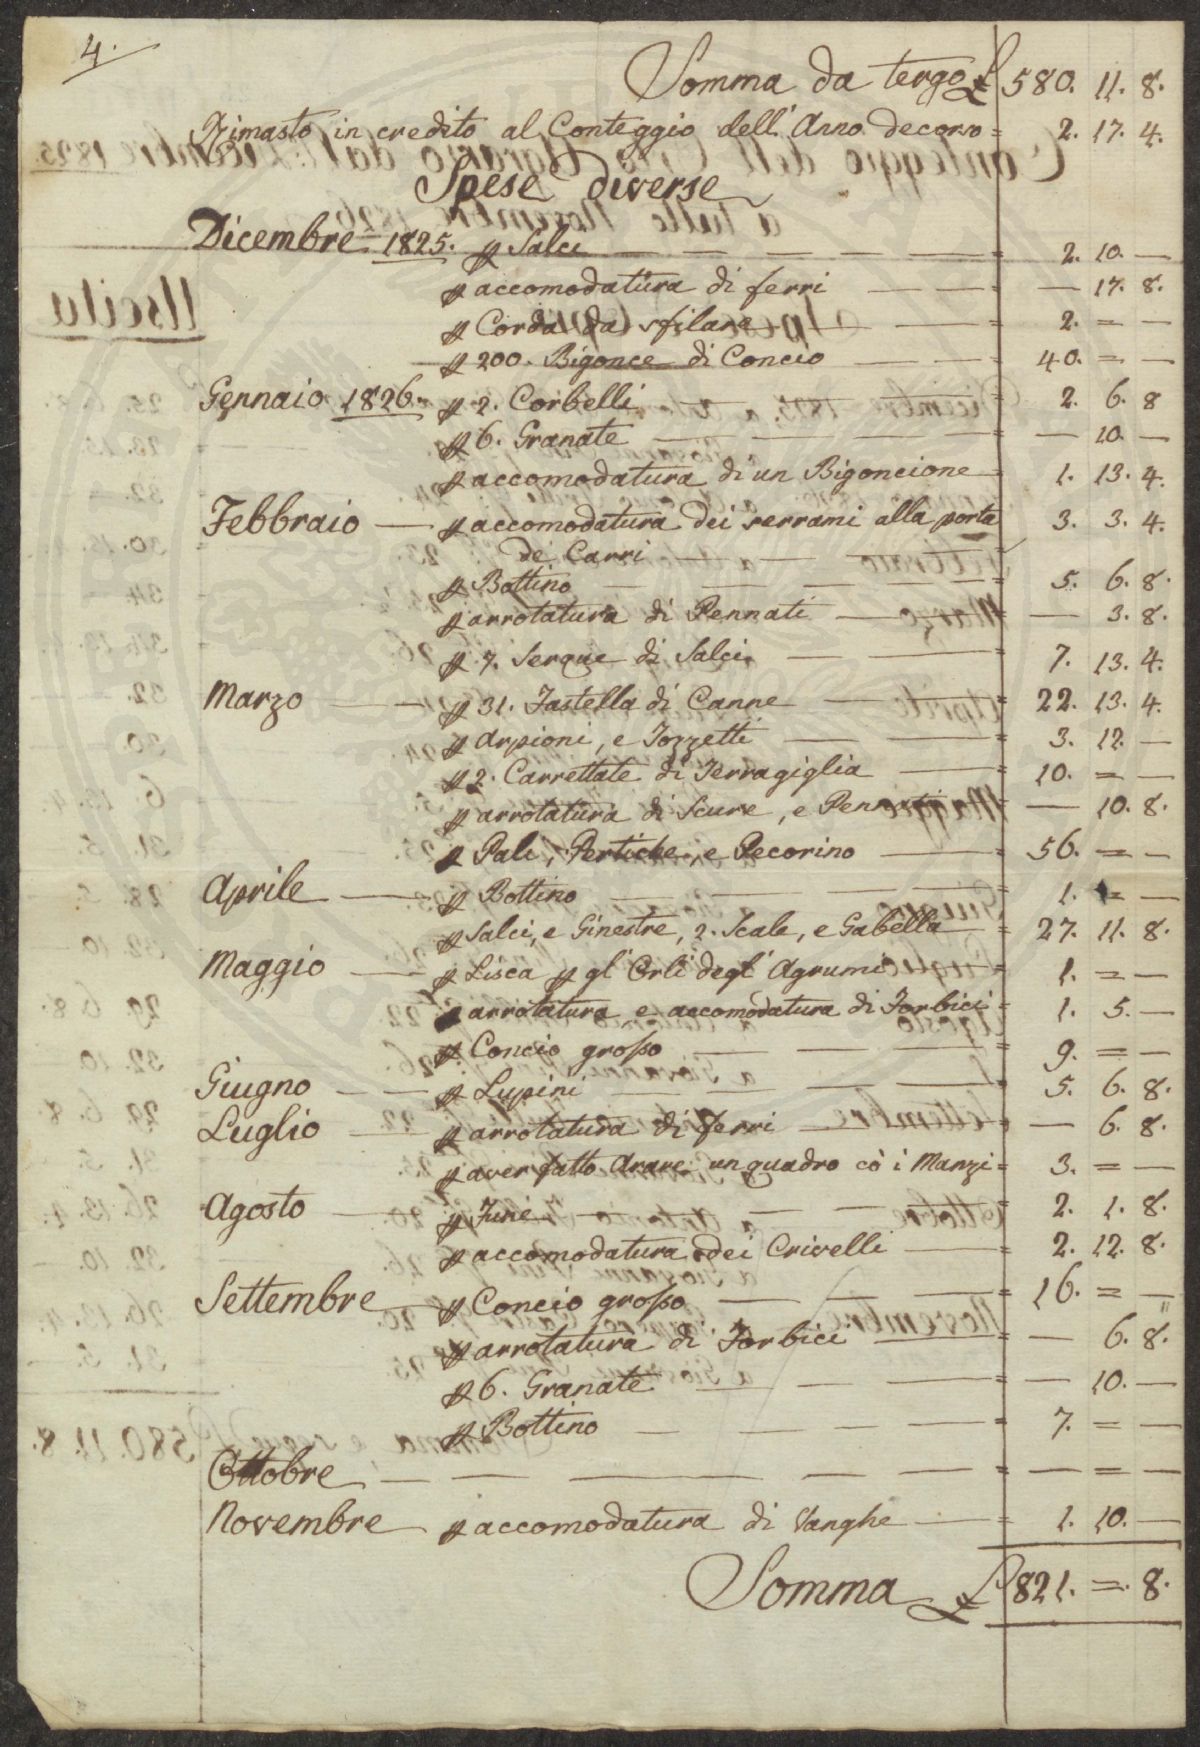 4.
Somma da tergo £ 580. 11. 8.
Rimasto in credito al Conteggio dell'Anno decorso = 2. 17. 4.
Spese diverse
Dicembre 1825. p Salci — = 2. 10. —
p accomodatura di ferri — = — 17. 8.
p Corda da sfilare — = 2. = —
p 200. Bigonce di Concio — = 40. = —
Gennaio 1826. p 2. Corbelli — = 2. 6. 8
p 6. Granate — = — 10. —
p accomodatura di un Bigoncione = 1. 13. 4.
Febbraio — p accomodatura dei serrami alla porta 3. 3. 4.
de' Carri —
p Bottino — = 5. 6. 8.
p arrotatura di Pennati — = — 3. 8.
p 7. Serque di Salci — = 7. 13. 4.
Marzo — p 31. Fastella di Canne — = 22. 13. 4.
p Arpioni, e Tozzetti — = 3. 12. —
p 2. Carrettate di Terragiglia — = 10. = —
p arrotatura di Scure, e Pennati = — 10. 8.
p Pali, Pertiche, e Pecorino — = 56. = —
Aprile — p Bottino — = 1. = —
p Salci, e Ginestre, 2. Scale, e Gabella = 27. 11. 8.
Maggio — p Lisca p gl' Orli degl' Agrumi = 1. = —
p arrotatura e accomodatura di Forbici = 1. 5. —
p Concio grosso — = 9. = —
Giugno — p Lupini — = 5. 6. 8.
Luglio — p arrotatura di ferri — = — 6. 8.
p aver fatto Arare un quadro cò i Manzi = 3. = —
Agosto — p Funi — = 2. 1. 8.
p accomodatura dei Crivelli — = 2. 12. 8.
Settembre — p Concio grosso — = 16. = —
p arrotatura di Forbici — = — 6. 8.
p 6. Granate — = — 10. —
p Bottino — = 7. = —
Ottobre — = — = —
Novembre — p accomodatura di Vanghe — = 1. 10. —
Somma £ 821. = . 8.